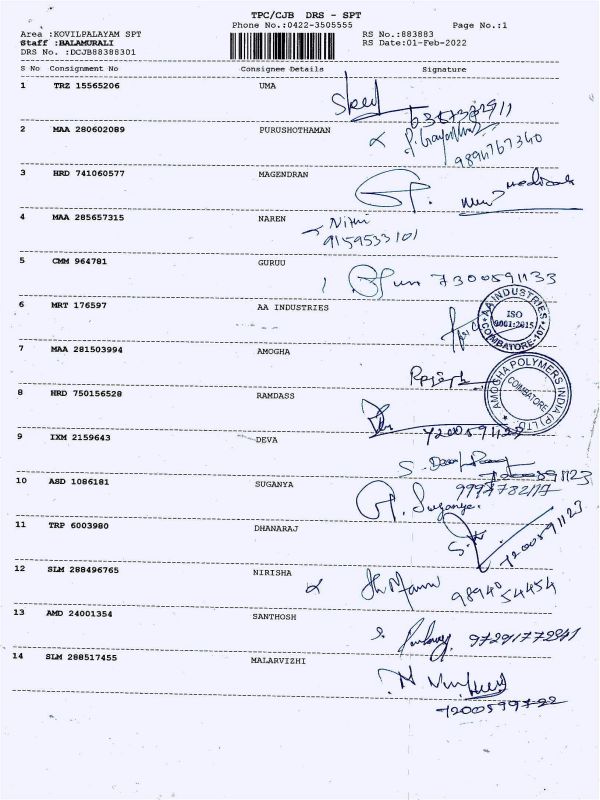 TPC/CJB DRS - SPT
Phone No.:0422-3505555 Page No.:1
Area :KOVILPALAYAM SPT RS No.:883883
Staff :BALAMURALI RS Date:01-Feb-2022
DRS No. :DCJB88388301
S No Consignment No Consignee Details Signature
1 TRZ 15565206 UMA
2 MAA 280602089 PURUSHOTHAMAN
9894767340
3 HRD 741060577 MAGENDRAN
4 MAA 285657315 NAREN Nithi
9159533101
5 CMM 964781 GURUU 7300591133
6 MRT 176597 AA INDUSTRIES
AA INDUSTRIES ISO 9001:2015 COIMBATORE-107
7 MAA 281503994 AMOGHA
AMOGHA POLYMERS INDIA (P) LTD COIMBATORE
8 HRD 750156528 RAMDASS
9 IXM 2159643 DEVA
7200591123
10 ASD 1086181 SUGANYA
Suganya.
11 TRP 6003980 DHANARAJ
7200591123
12 SLM 288496765 NIRISHA
9894054454
13 AMD 24001354 SANTHOSH
14 SLM 288517455 MALARVIZHI